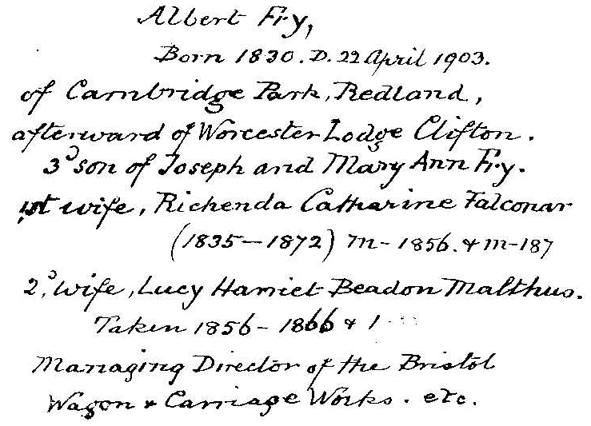 Albert Fry,
Born 1830. D. 22 April 1903.
of Cambridge Park, Redland,
afterward of Worcester Lodge Clifton.
3d son of Joseph and Mary Ann Fry.
1st wife, Richenda Catharine Falconar
(1835-1872) m- 1856. & m-187
2d, wife, Lucy Harriet Beadon Malthus.
Taken 1856- 1866 & 1
Managing Director of the Bristol
Wagon & Carriage Works. etc.